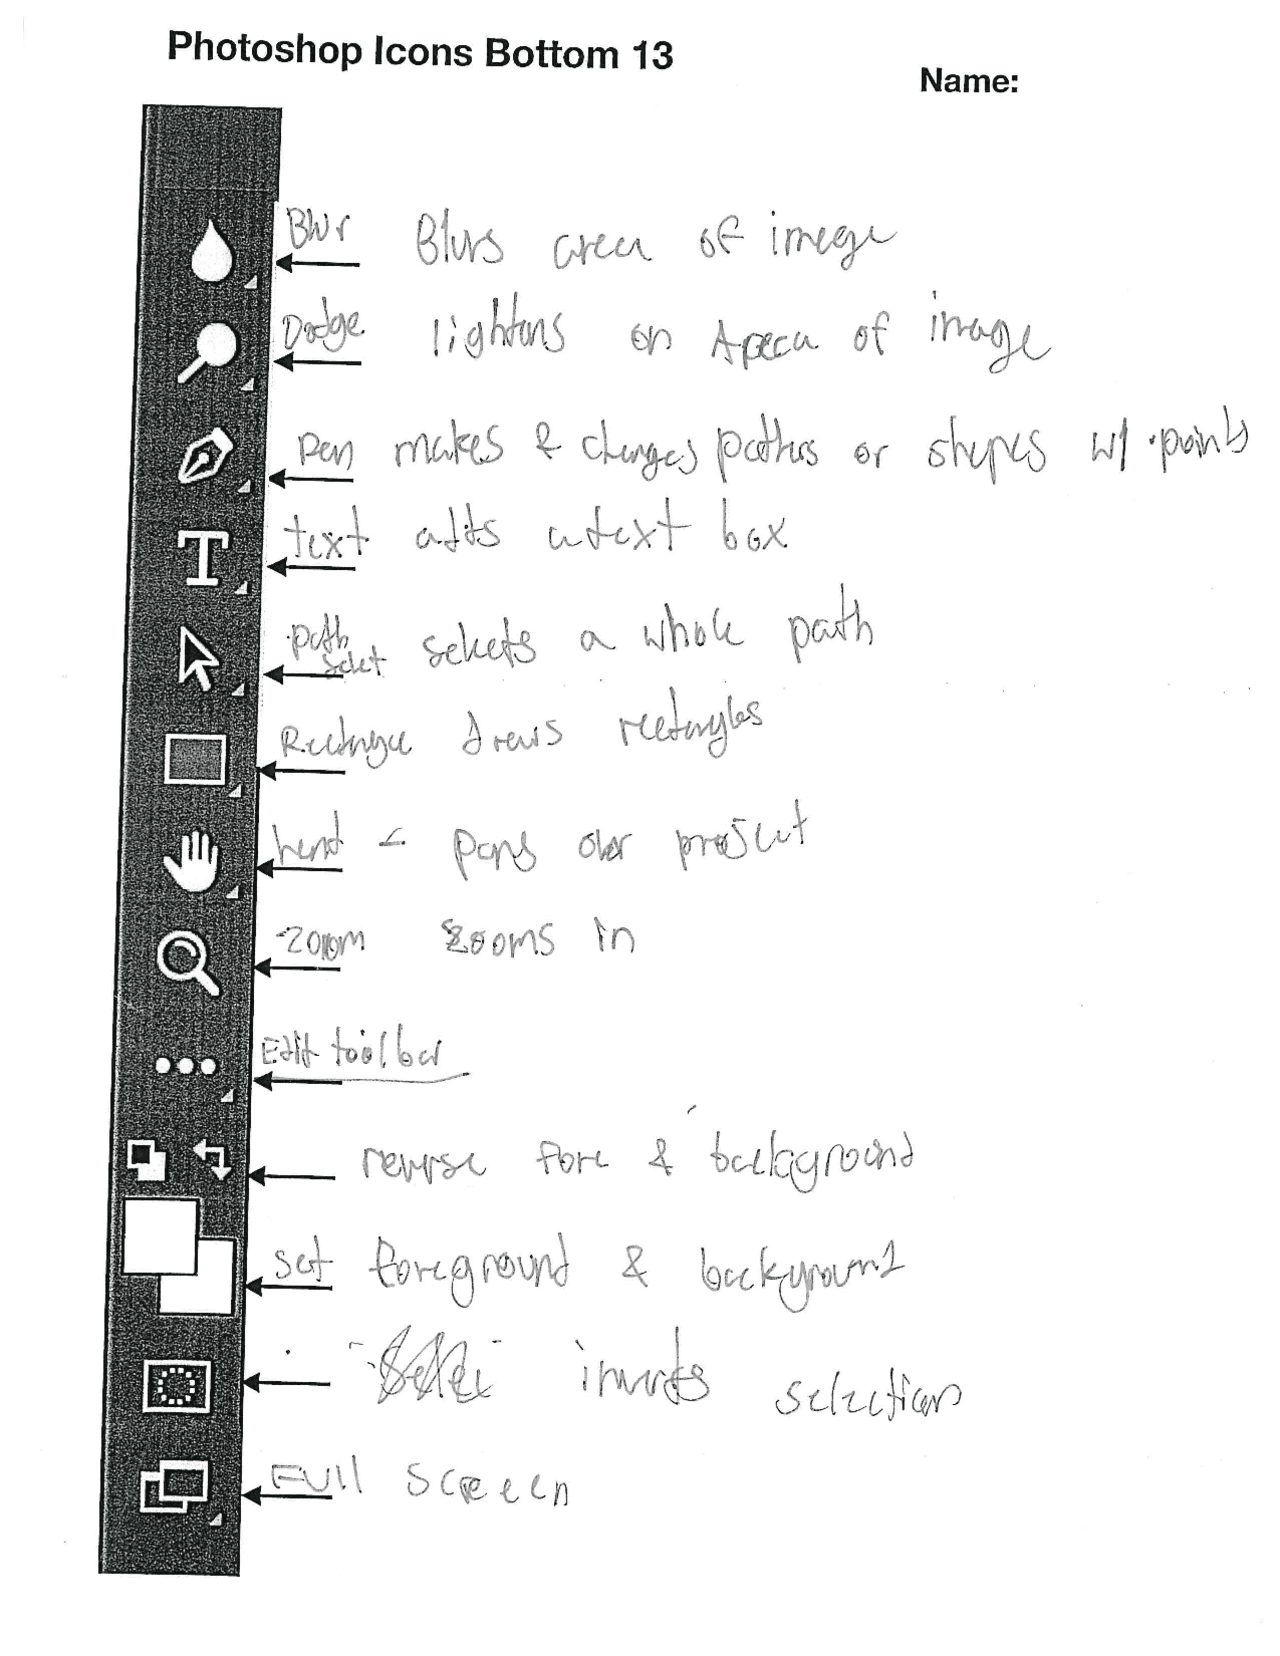 Photoshop Icons Bottom 13
Name:
Blur Blurs area of image
Dodge lightens on Area of image
Pen makes & changes paths or shapes w/ points
T text adds a text box
path select selects a whole path
Rectangle draws rectangles
hand - pans over project
Zoom zooms in
Edit toolbar
reverse fore & background
set foreground & background
inverts selection
Full screen